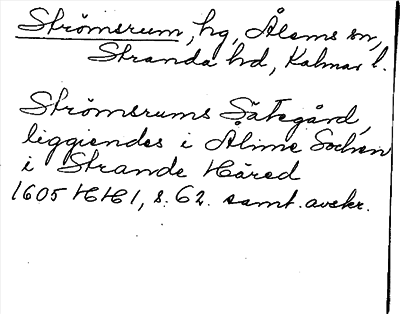 Strömsrum, hg, Ålems sn,
Stranda hd, Kalmar l.
Strömsrums Sätegård,
liggiendes i Ålime Sochen
i Strande Häred
1605 HH1, s. 62. samt. avskr.